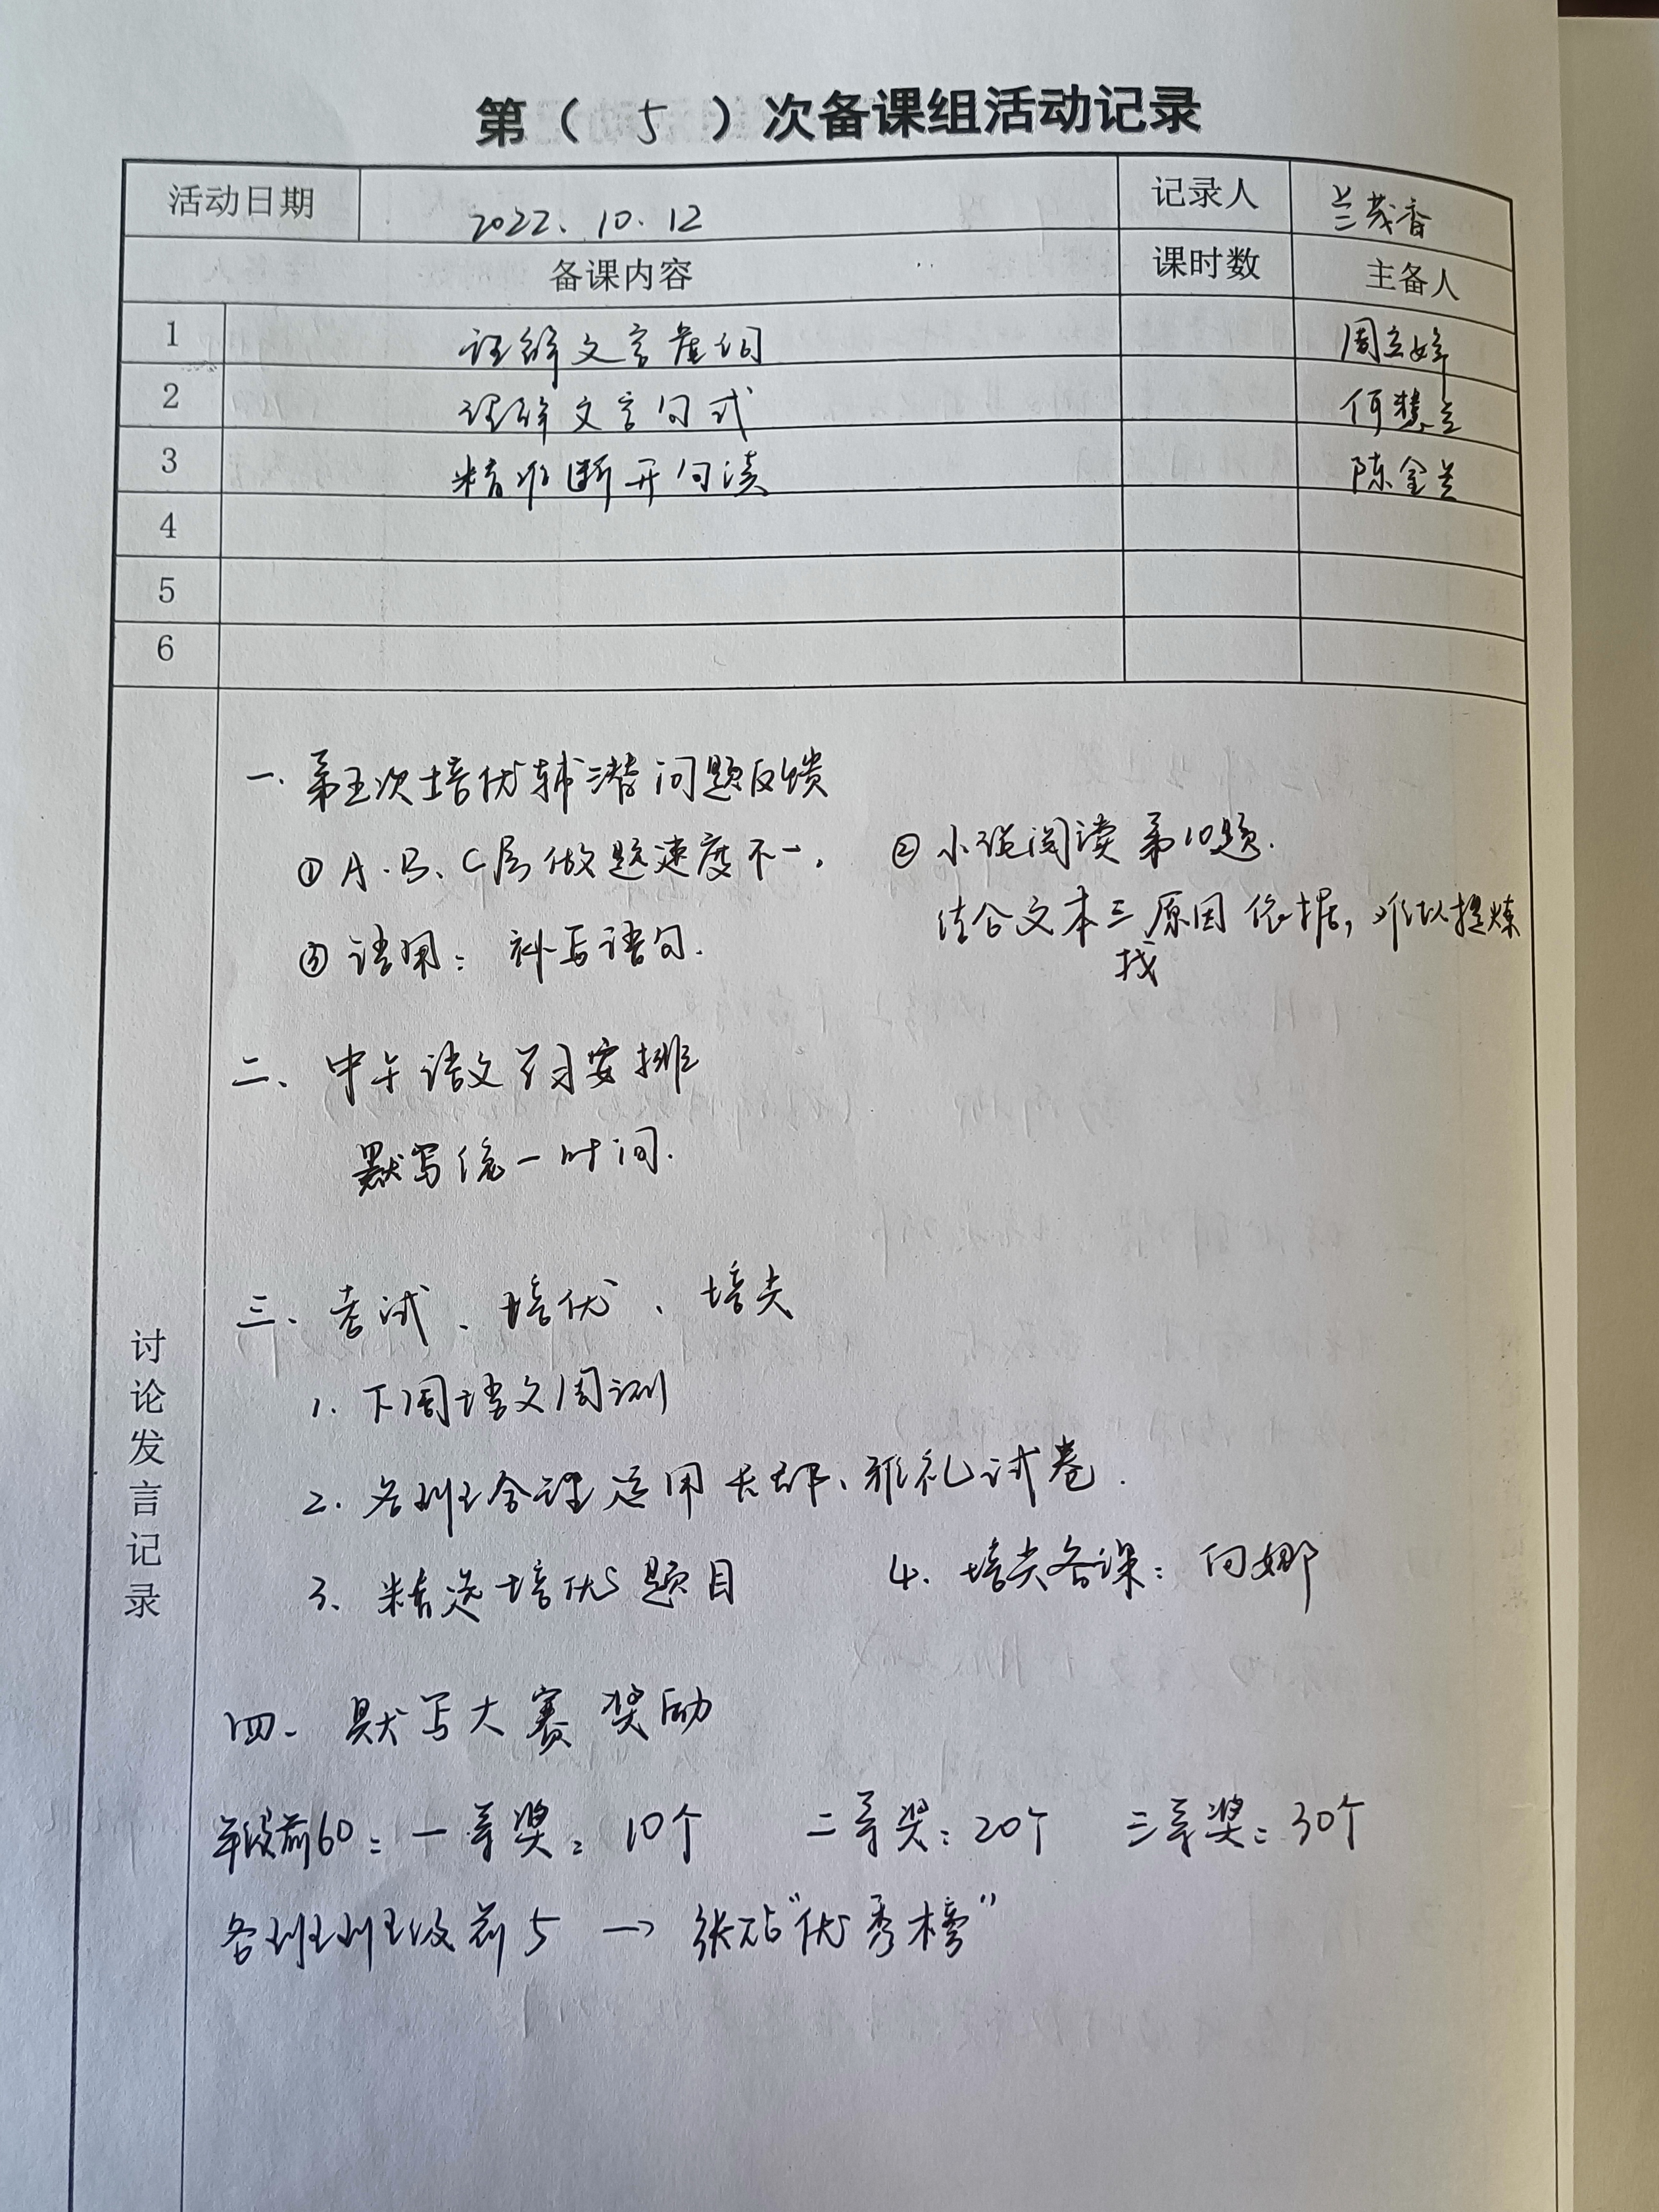 第（ 5 ）次备课组活动记录
活动日期 2022. 10. 12 记录人 兰茂香
备课内容 课时数 主备人
1 理解文言虚词 周立婷
2 理解文言句式 何慧兰
3 精准断开句读 陈金兰
4
5
6
讨论发言记录
一. 第五次培优辅潜问题反馈
① A.B、C层做题速度不一. ② 小说阅读第10题.
结合文本三原因依据, 难以提炼
找
③ 语用: 补写语句.
二、中午语文学习安排
默写统一时间.
三、考试、培优、培尖
1. 下周语文周测
2. 各班合理运用长郡、雅礼试卷.
3. 精选培优题目 4. 培尖备课: 向娜
四、默写大赛奖励
年级前60: 一等奖: 10个 二等奖: 20个 三等奖: 30个
各班班级前5 → 张贴“优秀榜”